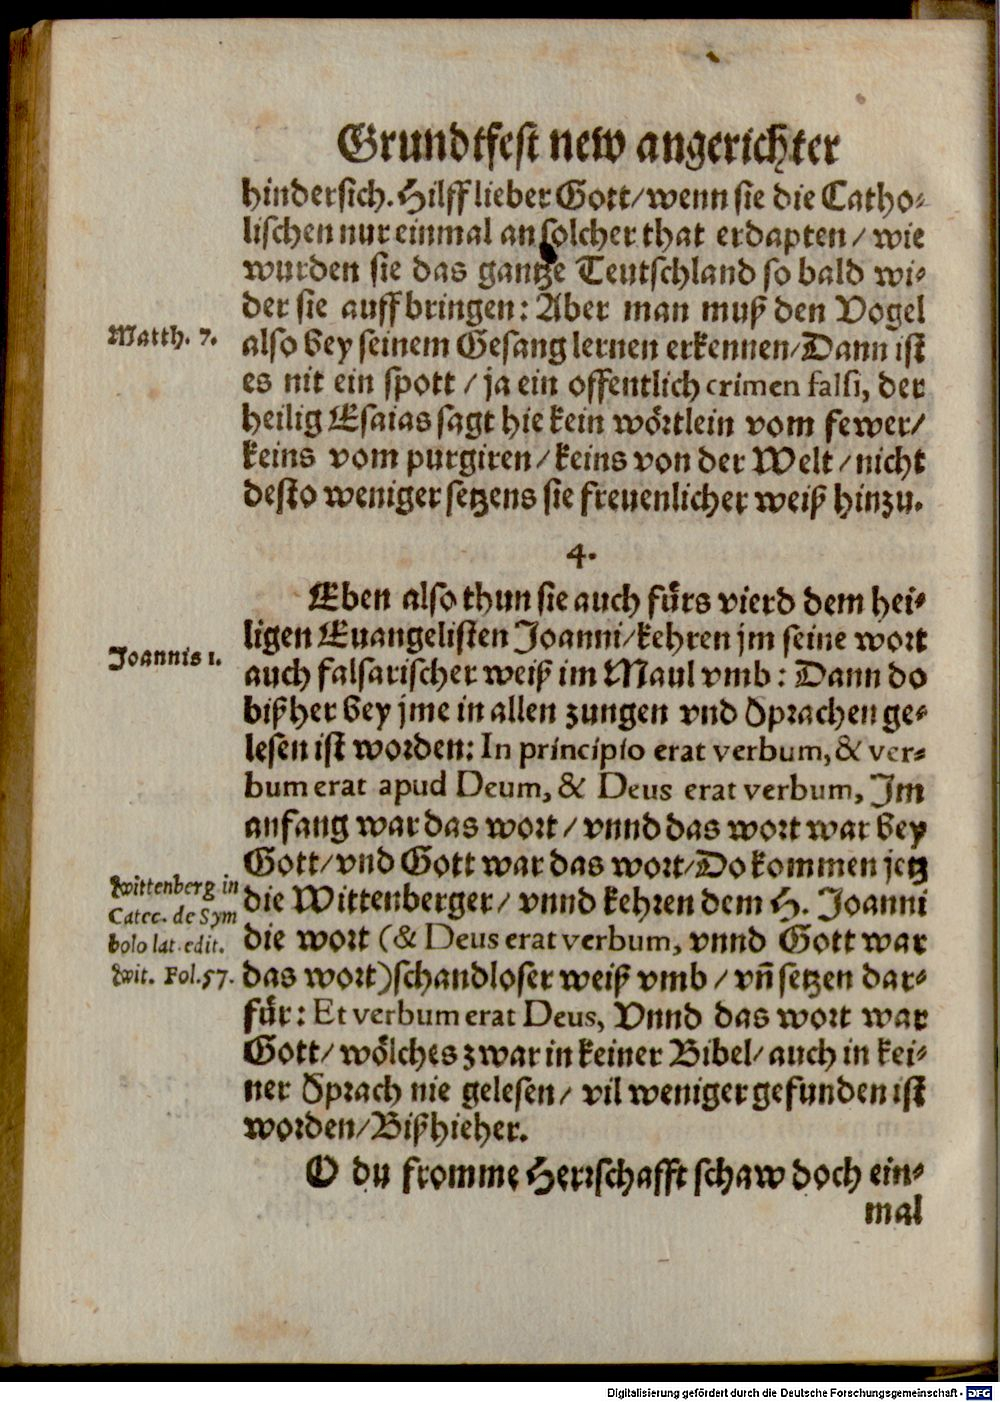 Grundtfest new angerichter
hindersich. Hilff lieber Gott/ wenn sie die Catho-
lischen nur einmal an solcher that erdapten/ wie
wurden sie das gantze Teutschland so bald wi-
der sie auffbringen: Aber man muß den Vogel
Matth. 7.
also bey seinem Gesang lernen erkennen/ Dann ist
es nit ein spott/ ja ein offentlich crimen falsi, der
heilig Esaias sagt hie kein wörtlein vom fewer/
keins vom purgiren/ keins von der Welt/ nicht
desto weniger setzens sie freuenlicher weiß hinzu.
4.
Eben also thun sie auch fürs vierd dem hei-
ligen Euangelisten Joanni/ kehren jm seine wort
Joannis 1.
auch falsarischer weiß im Maul vmb: Dann do
bißher bey jme in allen zungen vnd Sprachen ge-
lesen ist worden: In principio erat verbum, & ver-
bum erat apud Deum, & Deus erat verbum, Im
anfang war das wort/ vnnd das wort war bey
Gott/ vnd Gott war das wort/ Do kommen jetz
Wittenberg in
Catec. de Sym
bolo lat. edit.
Wit. Fol. 57.
die Wittenberger/ vnnd kehren dem H. Joanni
die wort (& Deus erat verbum, vnnd Gott war
das wort) schandloser weiß vmb/ vñ setzen dar-
für: Et verbum erat Deus, Vnnd das wort war
Gott/ wölches zwar in keiner Bibel/ auch in kei-
ner Sprach nie gelesen/ vil weniger gefunden ist
worden/ Bißhieher.
O du fromme Herrschafft schaw doch ein-
mal
Digitalisierung gefördert durch die Deutsche Forschungsgemeinschaft - DFG